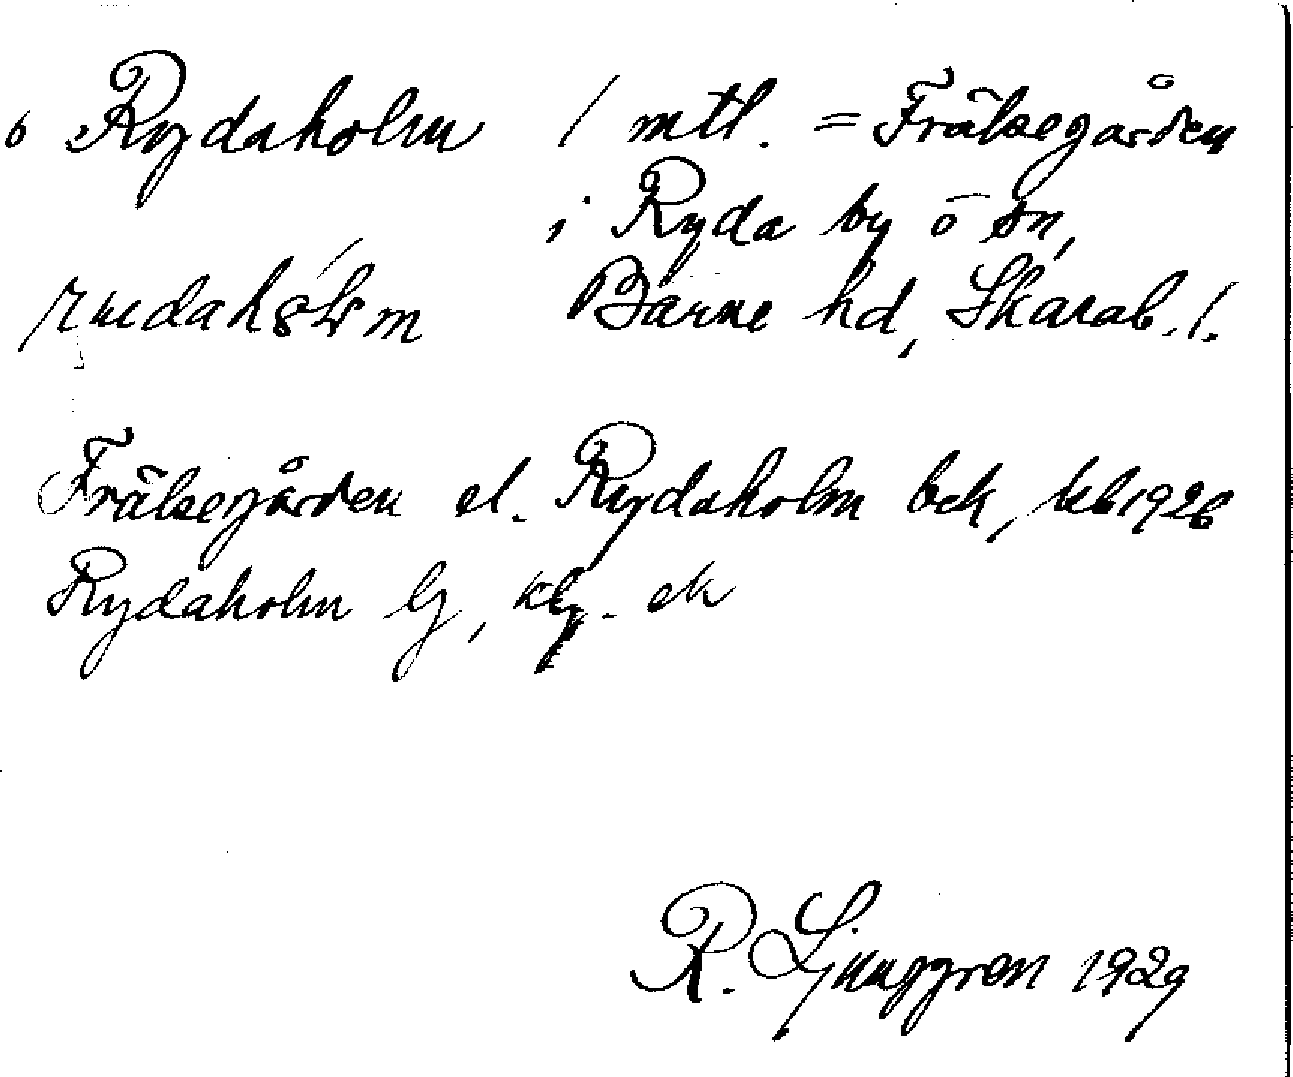 o Rydaholm / mtl. = Frälsegården
i Ryda by o sn,
Barne hd, Skarab. l.
Frälsegården el. Rydaholm bek, kb 1926
Rydaholm lj, ek
R. Ljunggren 1929